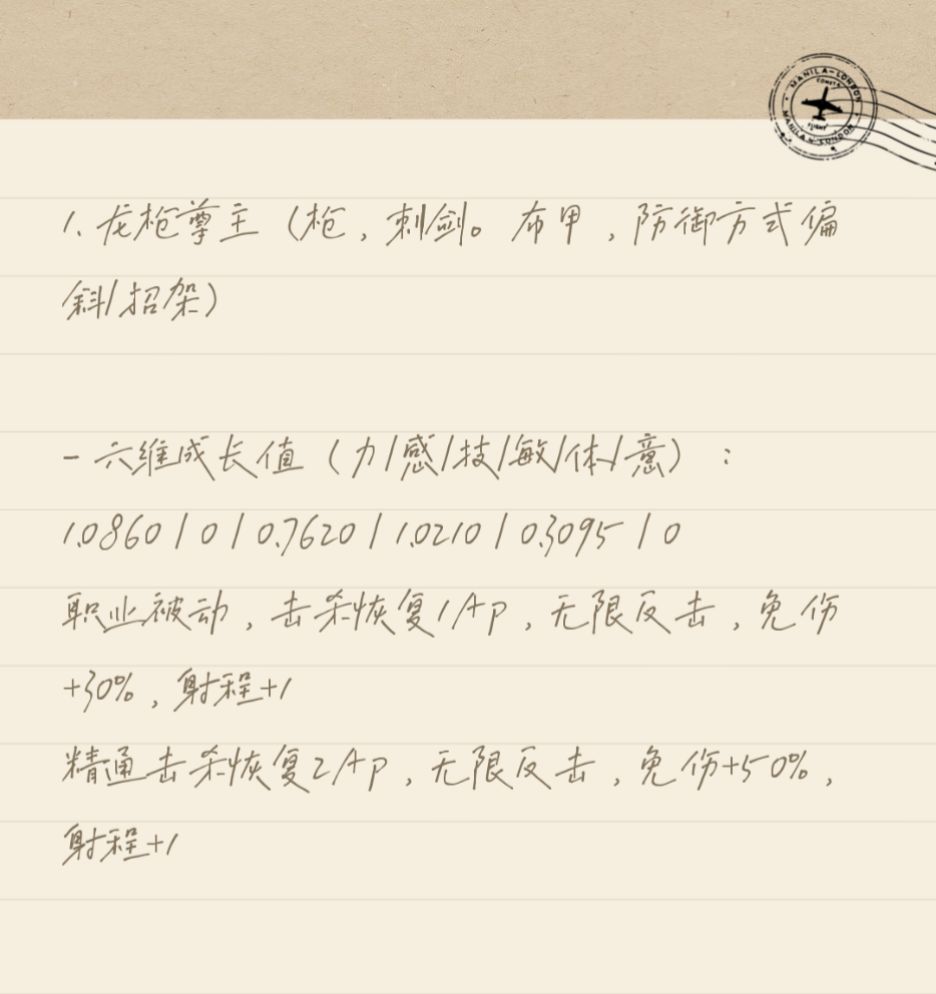 MANILA-LONDON
COMETA
FLIGHT
MANILA-LONDON
1. 龙枪尊主（枪，刺剑。布甲，防御方式偏
斜/招架）
- 六维成长值（力/感/技/敏/体/意）：
1.0860 / 0 / 0.7620 / 1.0210 / 0.3095 / 0
职业被动，击杀恢复1AP，无限反击，免伤
+30%，射程+1
精通击杀恢复2AP，无限反击，免伤+50%，
射程+1